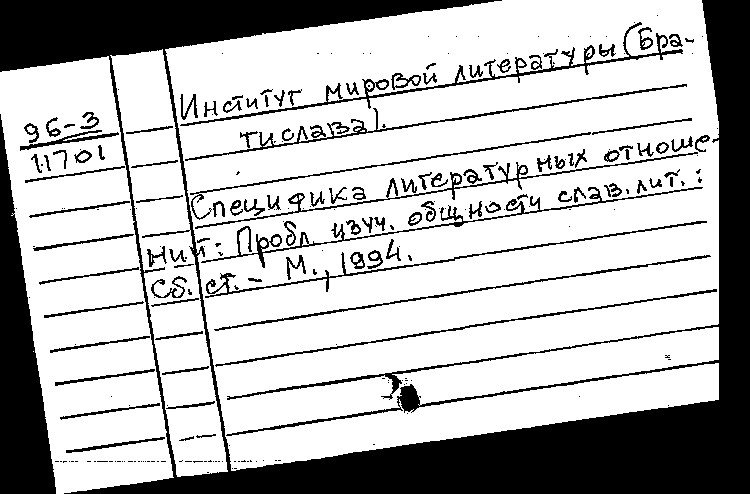 96-3
11701
Институт мировой литературы (Бра-
тислава).
Специфика литературных отноше-
ний: Пробл. изуч. общности слав. лит.:
Сб. ст. - М., 1994.